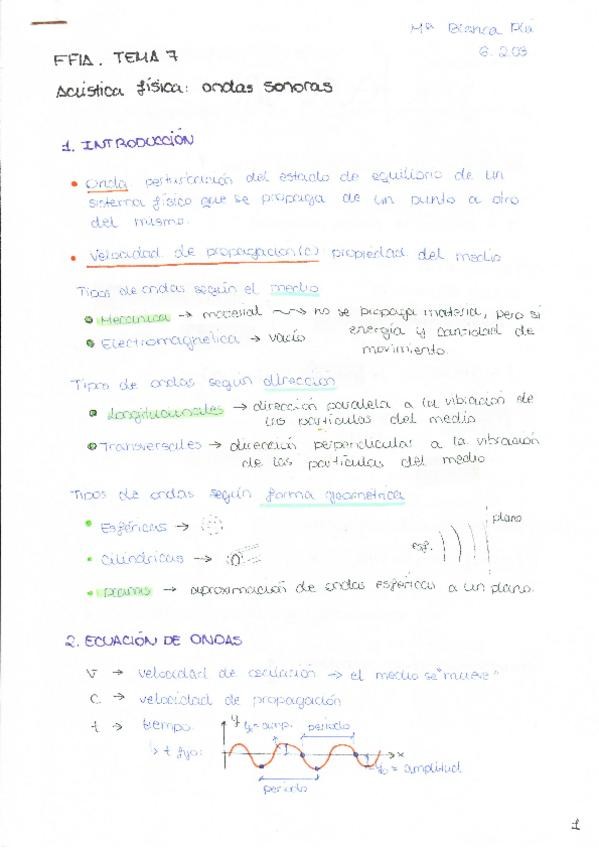 Mª Blanca Pla
G. 203
FFIA. TEMA 7
Acústica física: ondas sonoras
1. INTRODUCCIÓN
• Onda perturbación del estado de equilibrio de un
sistema físico que se propaga de un punto a otro
del mismo.
• Velocidad de propagación (c) propiedad del medio
Tipos de ondas según el medio
• Mecánica → material ⇝ no se propaga materia, pero si
energía y cantidad de
movimiento.
• Electromagnética → vacío
Tipos de ondas según dirección
• Longitudinales → dirección paralela a la vibración de
las partículas del medio
• Transversales → dirección perpendicular a la vibración
de las partículas del medio
Tipos de ondas según forma geométrica
• Esféricas →
• Cilíndricas →
esf.
plano
• planas → aproximación de ondas esféricas a un plano.
2. ECUACIÓN DE ONDAS
V → velocidad de oscilación → el medio se "mueve"
C → velocidad de propagación
t → tiempo.
↳ t fijo:
y
y₀ = amp.
periodo
x
y₀ = amplitud
periodo
1